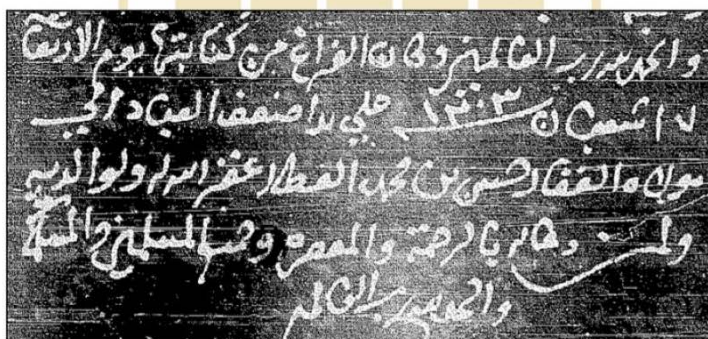 والحمد لله رب العالمين وكان الفراغ من كتابتها يوم الاربعا
شعبان ١٣٠٣ على يد اضعف العباد
مولاه الغفار حسين بن محمد القطان غفر الله له ولوالديه
ولمن دعا له بالرحمة والمغفره وجميع المسلمين
والحمد لله رب العالمين